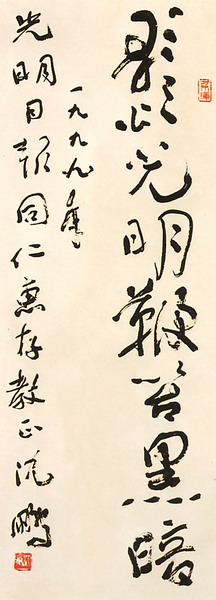 光明鞭笞黑暗
一九九九年
光明日报同仁惠存教正沈鹏